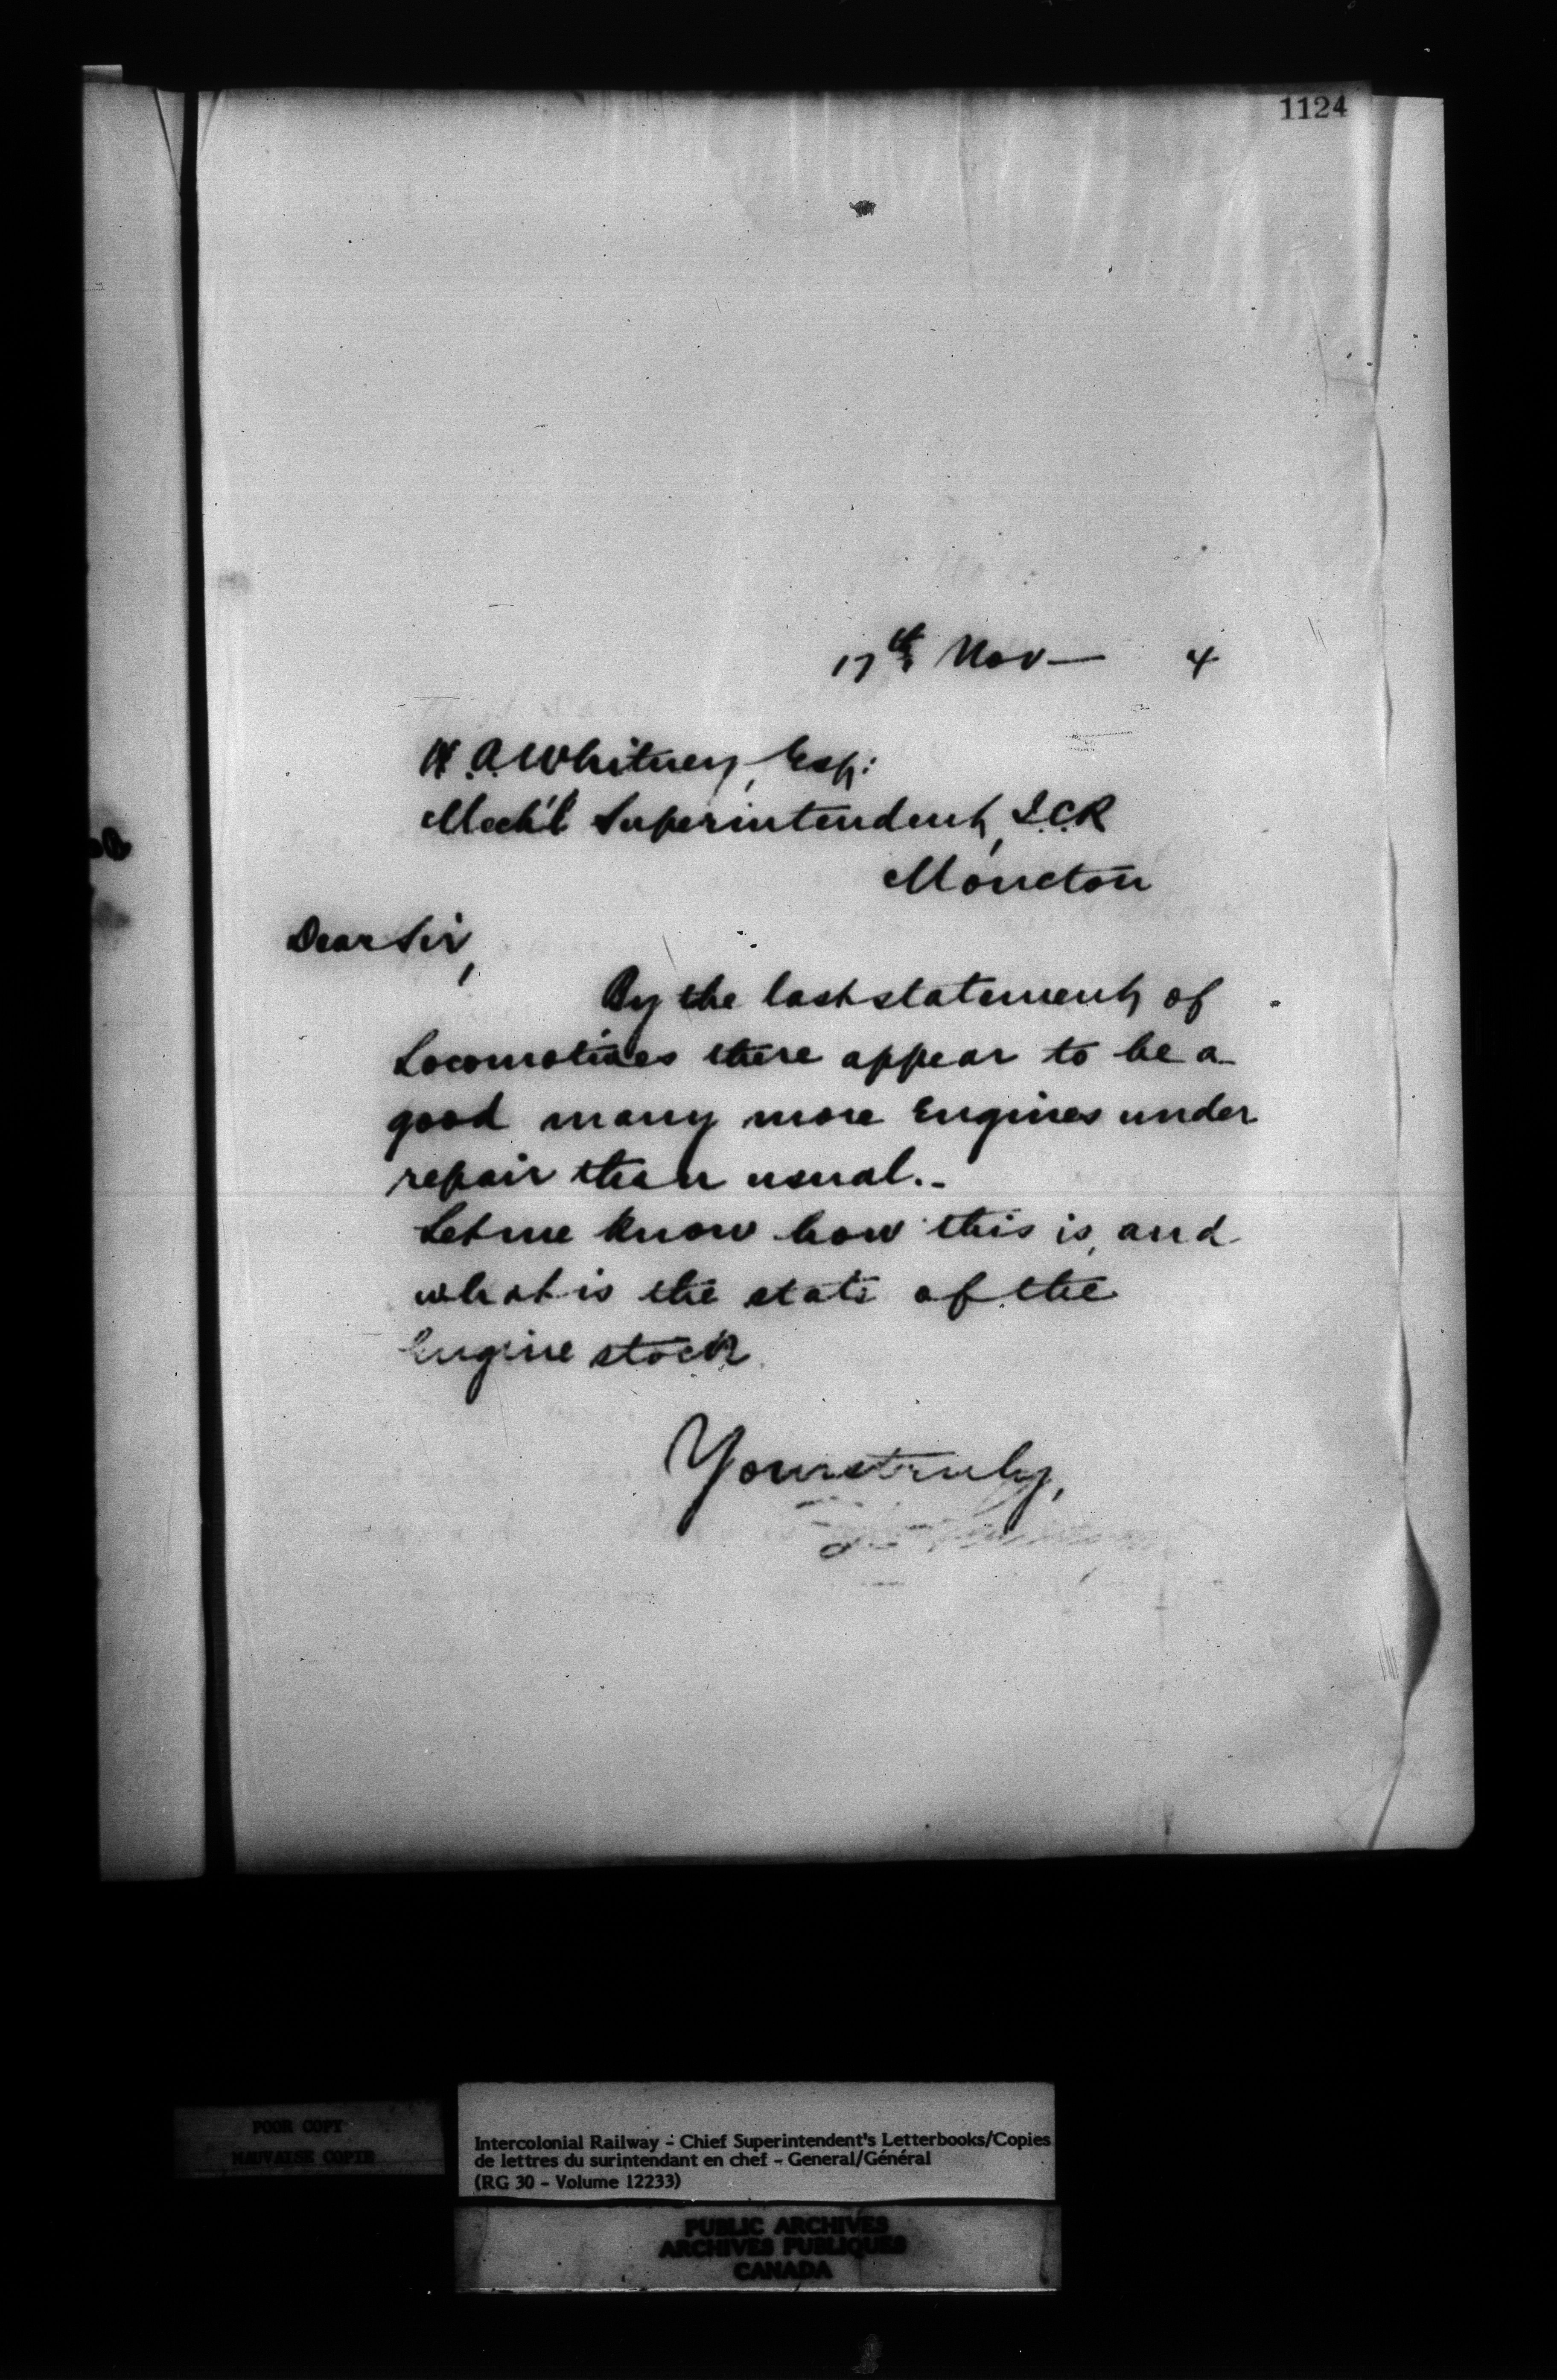 1124
17th Nov — 4
H. A. Whitney, Esq:
Mech'l Superintendent, I.C.R
Moncton
Dear Sir,
By the last statement, of
Locomotives there appear to be a
good many more Engines under
repair than usual.-
Let me know how this is, and
what is the state of the
Engine stock.
Yours truly,
POOR COPY
MAUVAISE COPIE
Intercolonial Railway - Chief Superintendent's Letterbooks/Copies
de lettres du surintendant en chef - General/Général
(RG 30 - Volume 12233)
PUBLIC ARCHIVES
ARCHIVES PUBLIQUES
CANADA